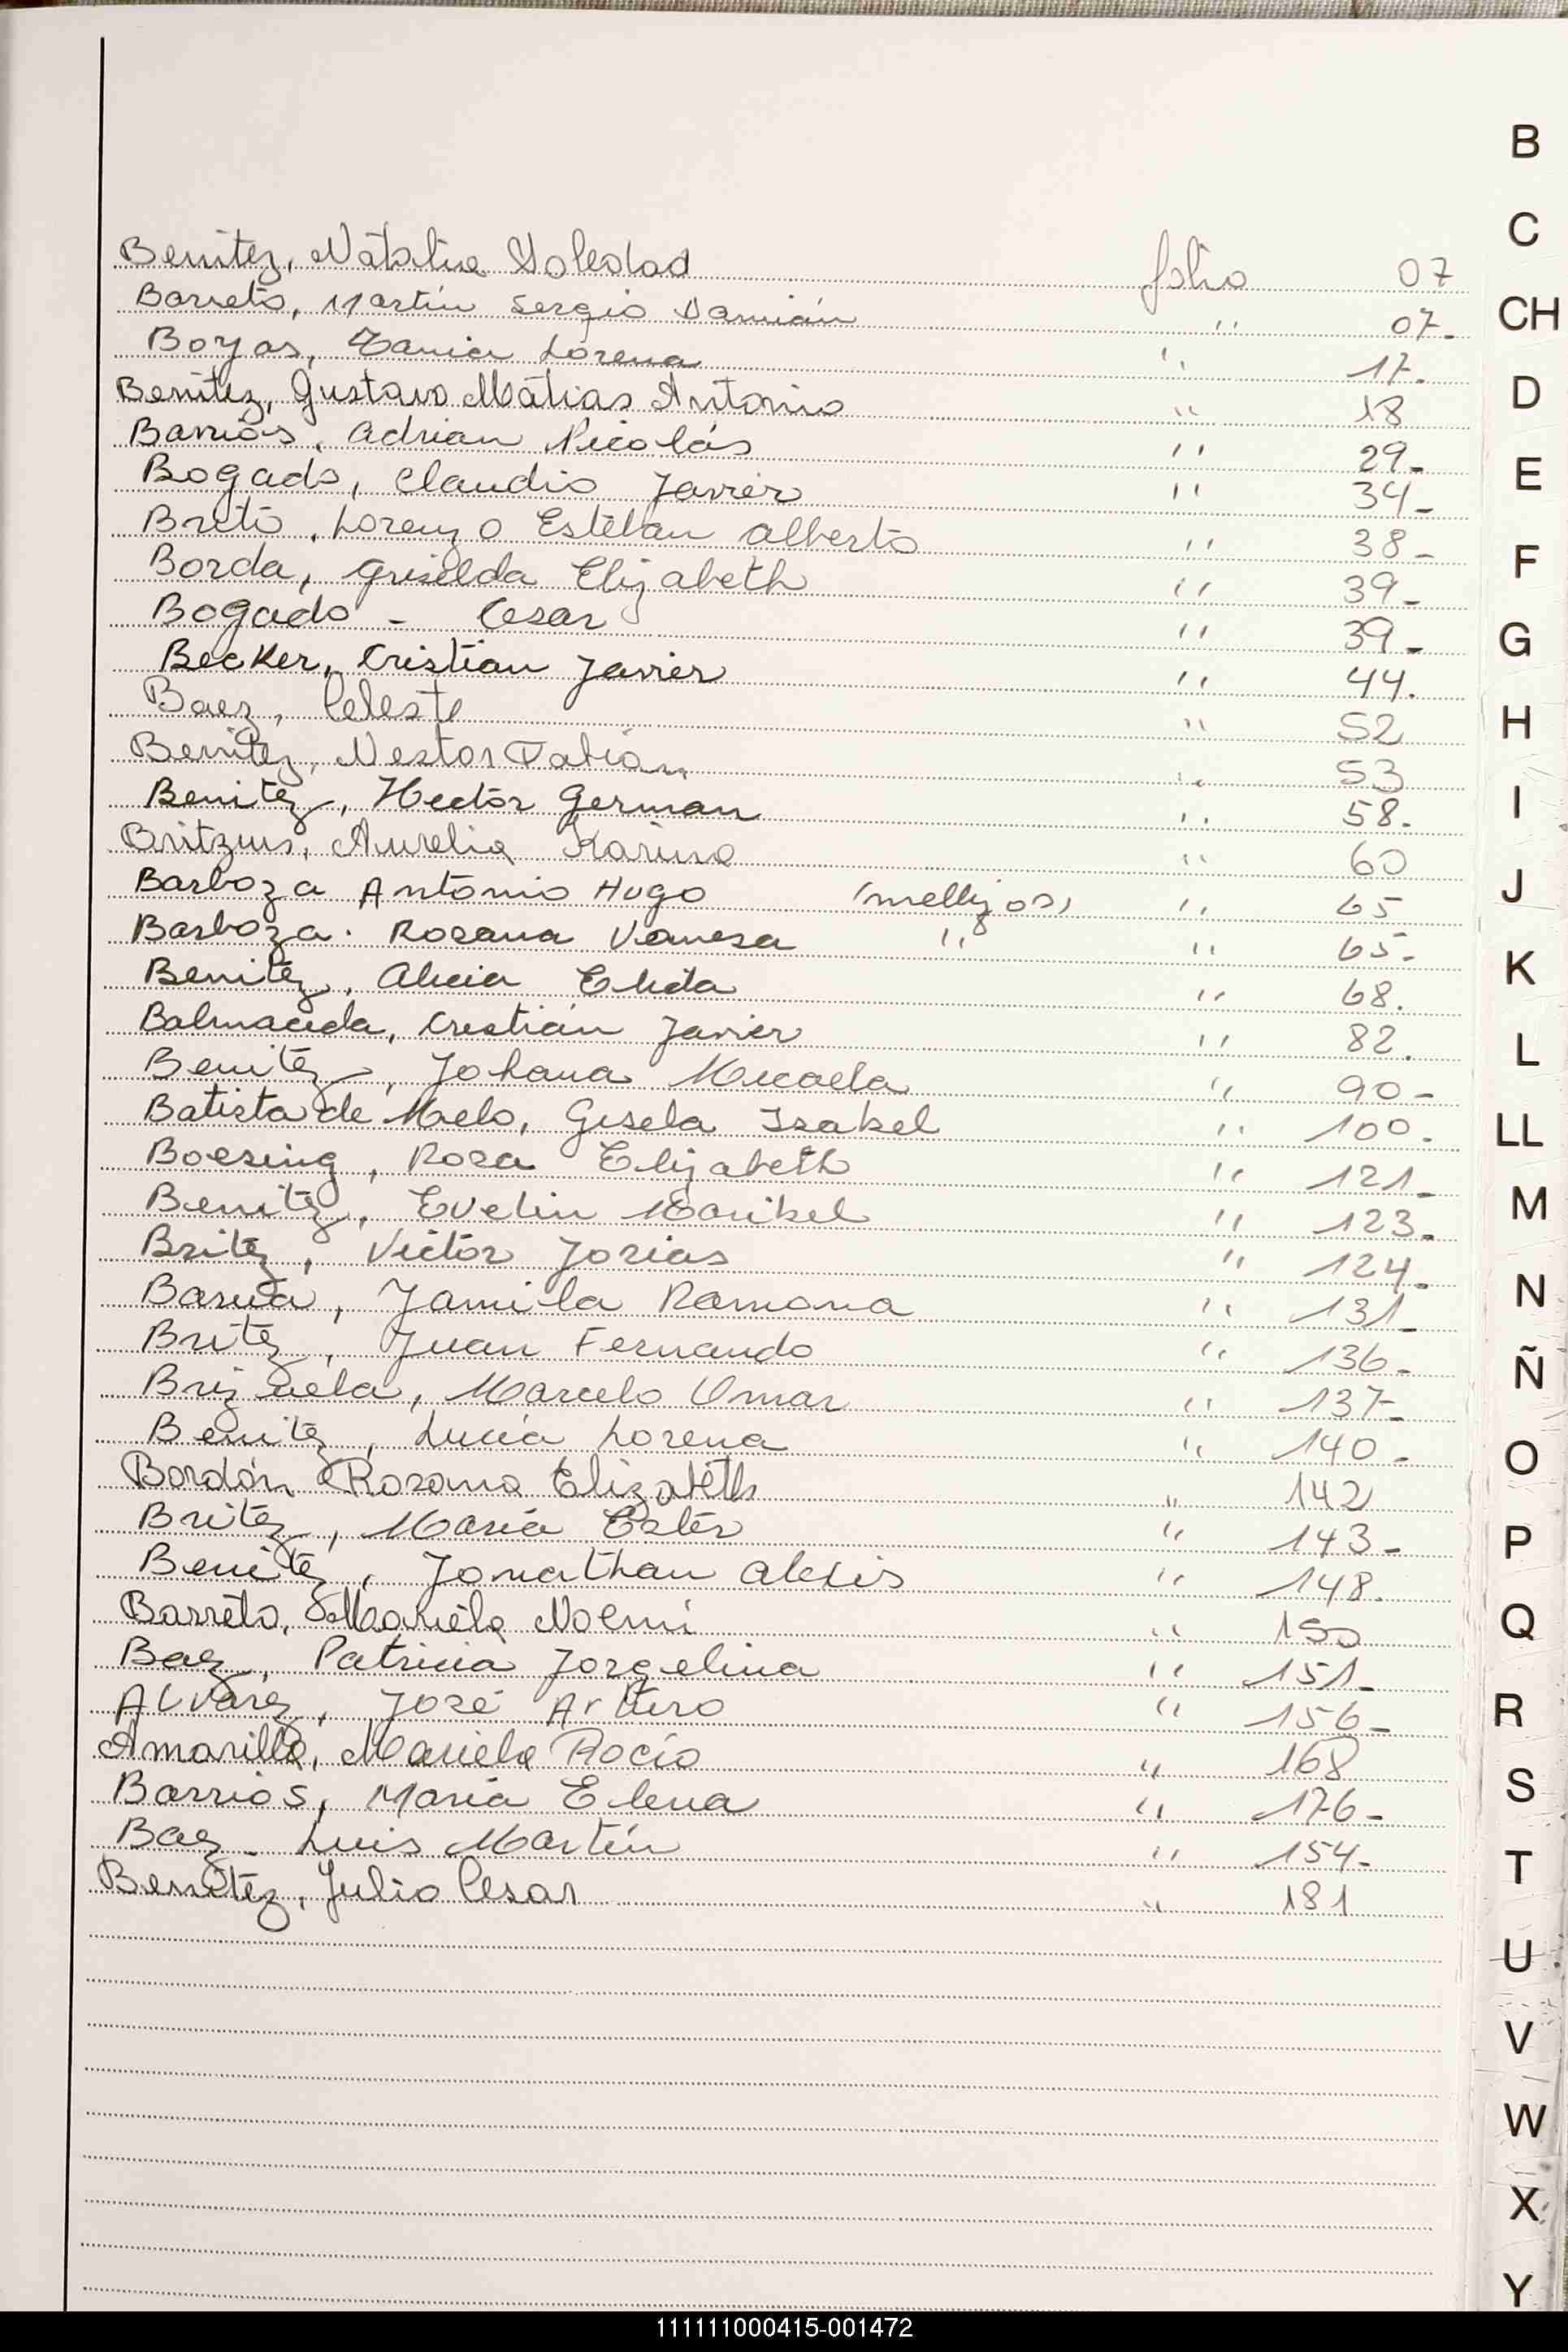 Benitez, Natalia Soledad folio 07
Barreto, Martín Sergio Damián " 07-
Boyas, Tania Lorena " 17.
Benítez, Gustavo Matías Antonio " 18
Barrios, Adrian Nicolás " 29-
Bogado, Claudio Javier " 34-
Brito, Lorenzo Estéban Alberto " 38-
Borda, Griselda Elizabeth " 39-
Bogado - Cesar " 39-
Becker, Cristian Javier " 44.
Baez, Celeste " 52
Benitez, Nestor Fabián " 53
Benitez, Hector German " 58.
Aurelia Karina " 60
Barboza Antonio Hugo (mellizos) " 65
Barboza. Rosana Vanesa " " 65-
Benitez, Alicia Elida " 68.
Balmaceda, Cristián Javier " 82.
Benitez, Johana Micaela " 90-
Batista de Melo, Gisela Isabel " 100.
Boesing, Rosa Elizabeth " 121-
Benitez, Evelin Maribel " 123-
Britez, Victor Josias " 124-
Barúa, Jamila Ramona " 131-
Britez, Juan Fernando " 136-
Brizuela, Marcelo Omar " 137-
Benitez, Lucía Lorena " 140-
Bordón Rosana Elizabeth " 142
Britez, María Ester " 143-
Benitez, Jonathan Alexis " 148.
Barreto, Mariela Noemí " 150
Baez, Patricia Jorgelina " 151-
Alvarez, José Arturo " 156-
Amarilla, Mariela Rocío " 168
Barrios, María Elena " 176-
Baez - Luis Martín " 154-
Benítez, Julio Cesar " 181
B
C
CH
D
E
F
G
H
I
J
K
L
LL
M
N
Ñ
O
P
Q
R
S
T
U
V
W
X
Y
111111000415-001472